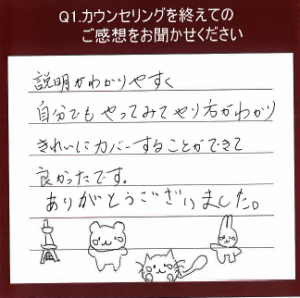 Q1.カウンセリングを終えての
ご感想をお聞かせください
説明がわかりやすく
自分でもやってみてやり方がわかり
きれいにカバーすることができて
良かったです。
ありがとうございました。